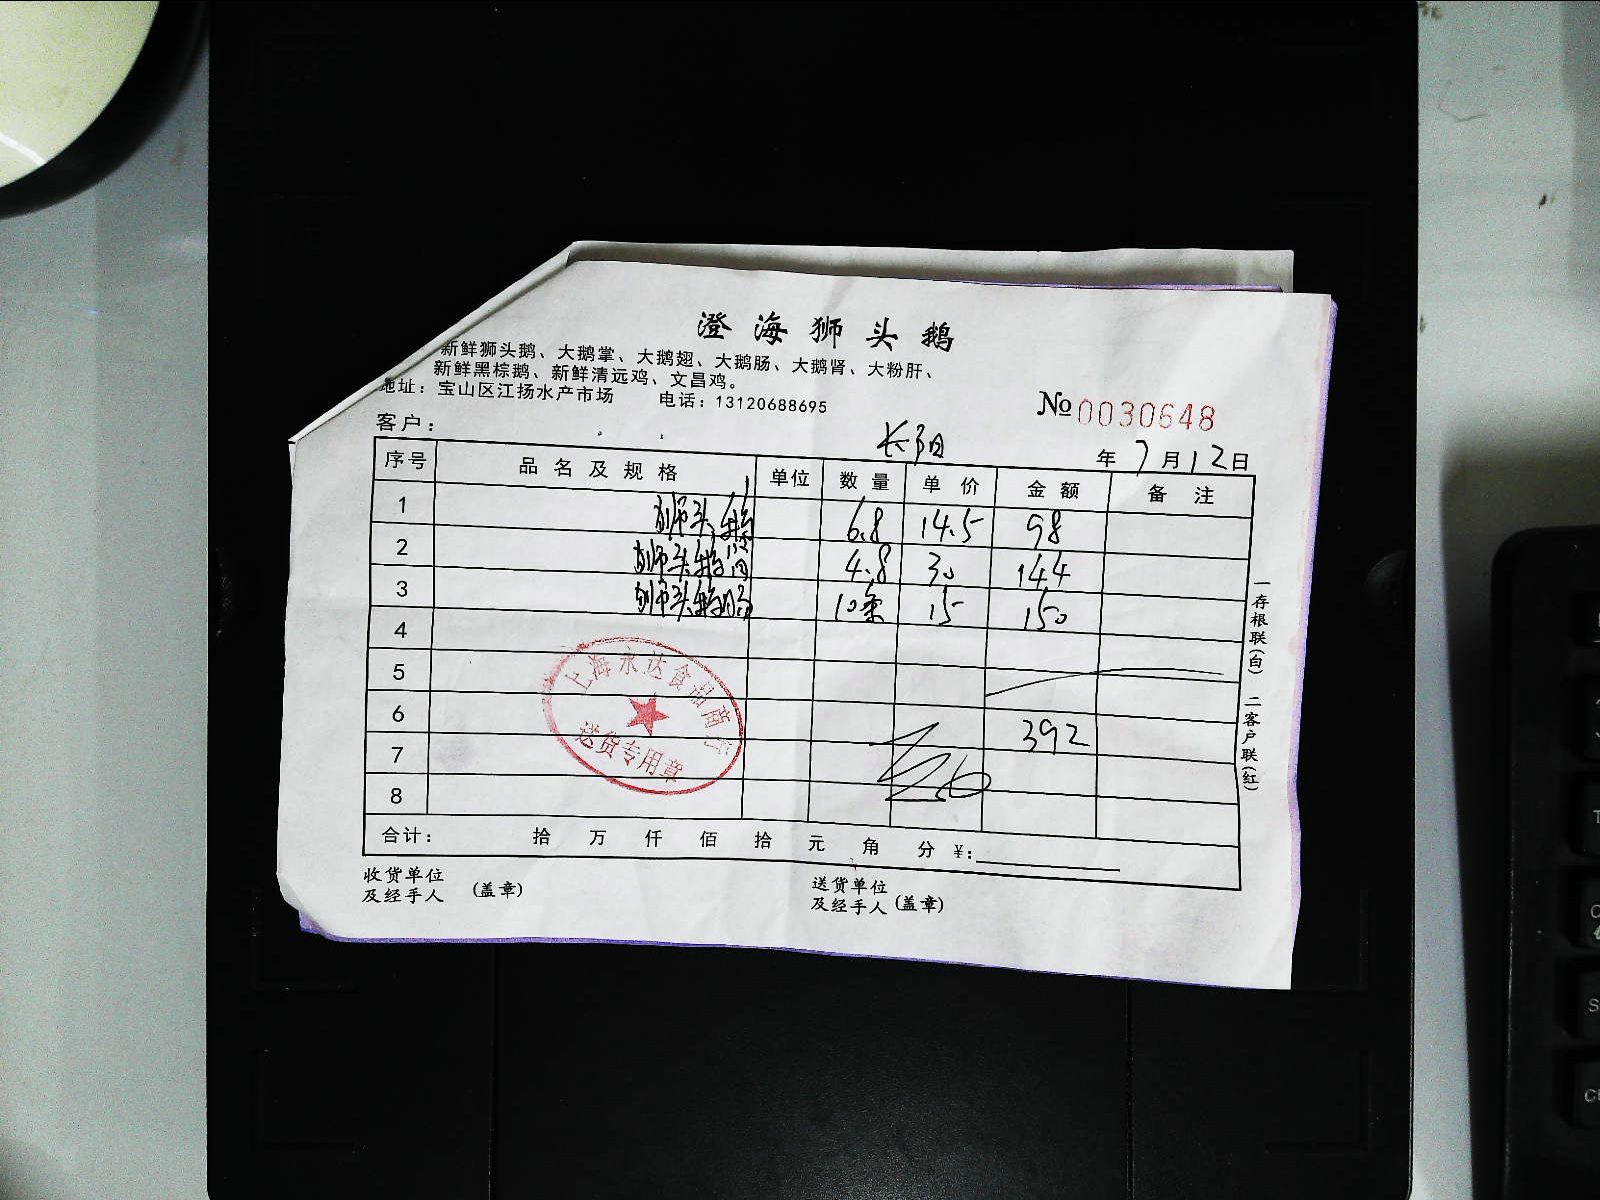 澄海狮头鹅
新鲜狮头鹅、大鹅掌、大鹅翅、大鹅肠、大鹅肾、大粉肝、
新鲜黑棕鹅、新鲜清远鸡、文昌鸡。
地址：宝山区江扬水产市场 电话：13120688695
No 0030648
客户： 长阳 年 7 月 12 日
序号 品名及规格 单位 数量 单价 金额 备注
1 狮头鹅 6.8 14.5 98
2 狮头鹅 4.8 30 144
3 狮头鹅 10条 15 150
4
5
6 392
7
8
上海永达食品商行
送货专用章
合计： 拾 万 仟 佰 拾 元 角 分 ¥:
收货单位
及经手人 (盖章)
送货单位
及经手人 (盖章)
一存根联(白) 二客户联(红)